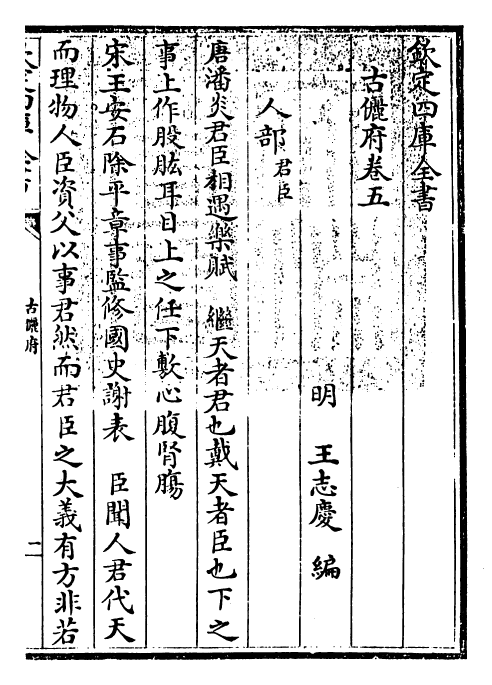 欽定四庫全書
古儷府卷五
明 王志慶 編
人部 君臣
唐潘炎君臣相遇樂賦 繼天者君也戴天者臣也下之
事上作股肱耳目上之任下敷心腹腎腸
宋王安石除平章事監修國史謝表 臣聞人君代天
而理物人臣資父以事君然而君臣之大義有方非若
古儷府
二